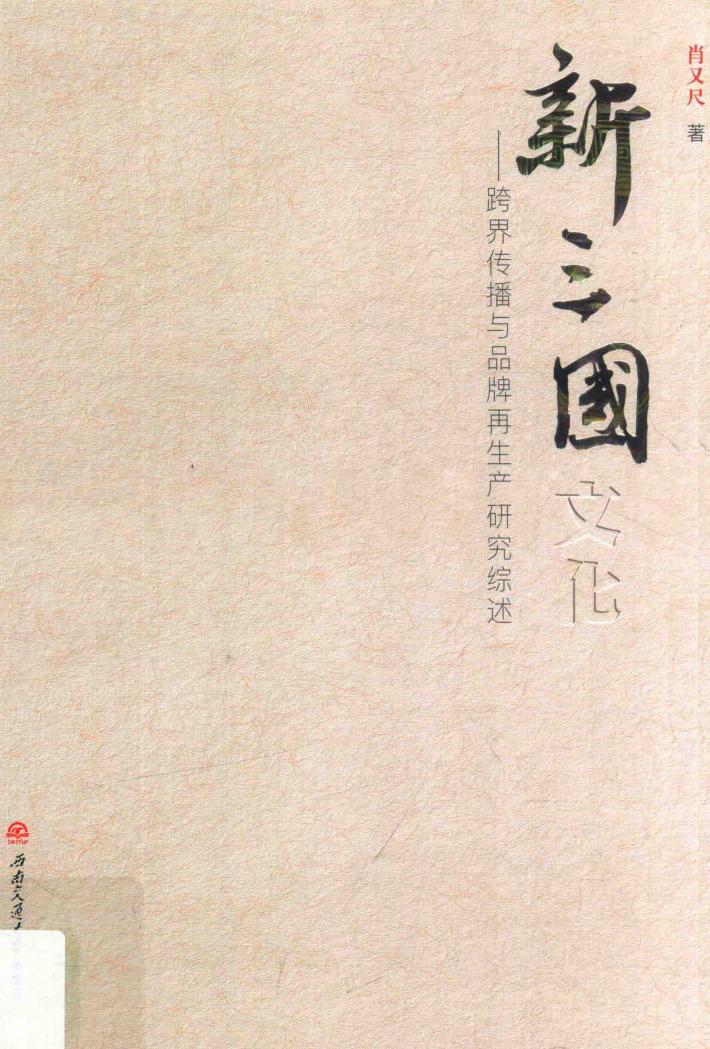 肖又尺 著
新三國文化
——跨界传播与品牌再生产研究综述
SWJTUP
西南交通大